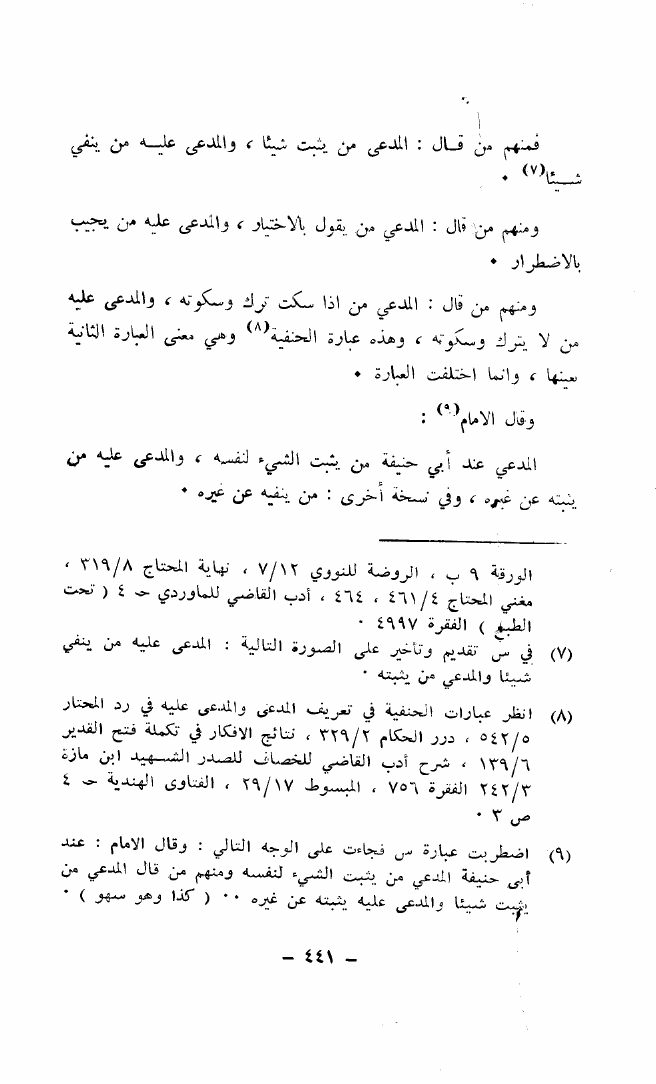 فمنهم من قال : المدعي من يثبت شيئا ، والمدعى عليه من ينفي
شيئا(٧) ٠
ومنهم من قال : المدعي من يقول بالاختيار ، والمدعى عليه من يجيب
بالاضطرار ٠
ومنهم من قال : المدعي من اذا سكت ترك وسكوته ، والمدعى عليه
من لا يترك وسكوته ، وهذه عبارة الحنفية(٨) وهي معنى العبارة الثانية
بعينها ، وانما اختلفت العبارة ٠
وقال الامام(٩) :
المدعي عند أبي حنيفة من يثبت الشيء لنفسه ، والمدعى عليه من
يثبته عن غيره ، وفي نسخة أخرى : من ينفيه عن غيره ٠
الورقة ٩ ب ، الروضة للنووي ٧/١٢ ، نهاية المحتاج ٣١٩/٨ ،
مغني المحتاج ٤٦١/٤ ، ٤٦٤ ، أدب القاضي للماوردي حـ ٤ ( تحت
الطبع ) الفقرة ٤٩٩٧ ٠
(٧) في س تقديم وتأخير على الصورة التالية : المدعى عليه من ينفي
شيئا والمدعي من يثبته ٠
(٨) انظر عبارات الحنفية في تعريف المدعي والمدعى عليه في رد المحتار
٥٤٢/٥ ، درر الحكام ٣٢٩/٢ ، نتائج الافكار في تكملة فتح القدير
١٣٩/٦ ، شرح أدب القاضي للخصاف للصدر الشهيد ابن مازة
٢٤٢/٣ الفقرة ٧٥٦ ، المبسوط ٢٩/١٧ ، الفتاوى الهندية حـ ٤
ص ٣ ٠
(٩) اضطربت عبارة س فجاءت على الوجه التالي : وقال الامام : عند
أبي حنيفة المدعي من يثبت الشيء لنفسه ومنهم من قال المدعي من
يثبت شيئا والمدعى عليه يثبته عن غيره ٠٠ ( كذا وهو سهو ) ٠
– ٤٤١ –